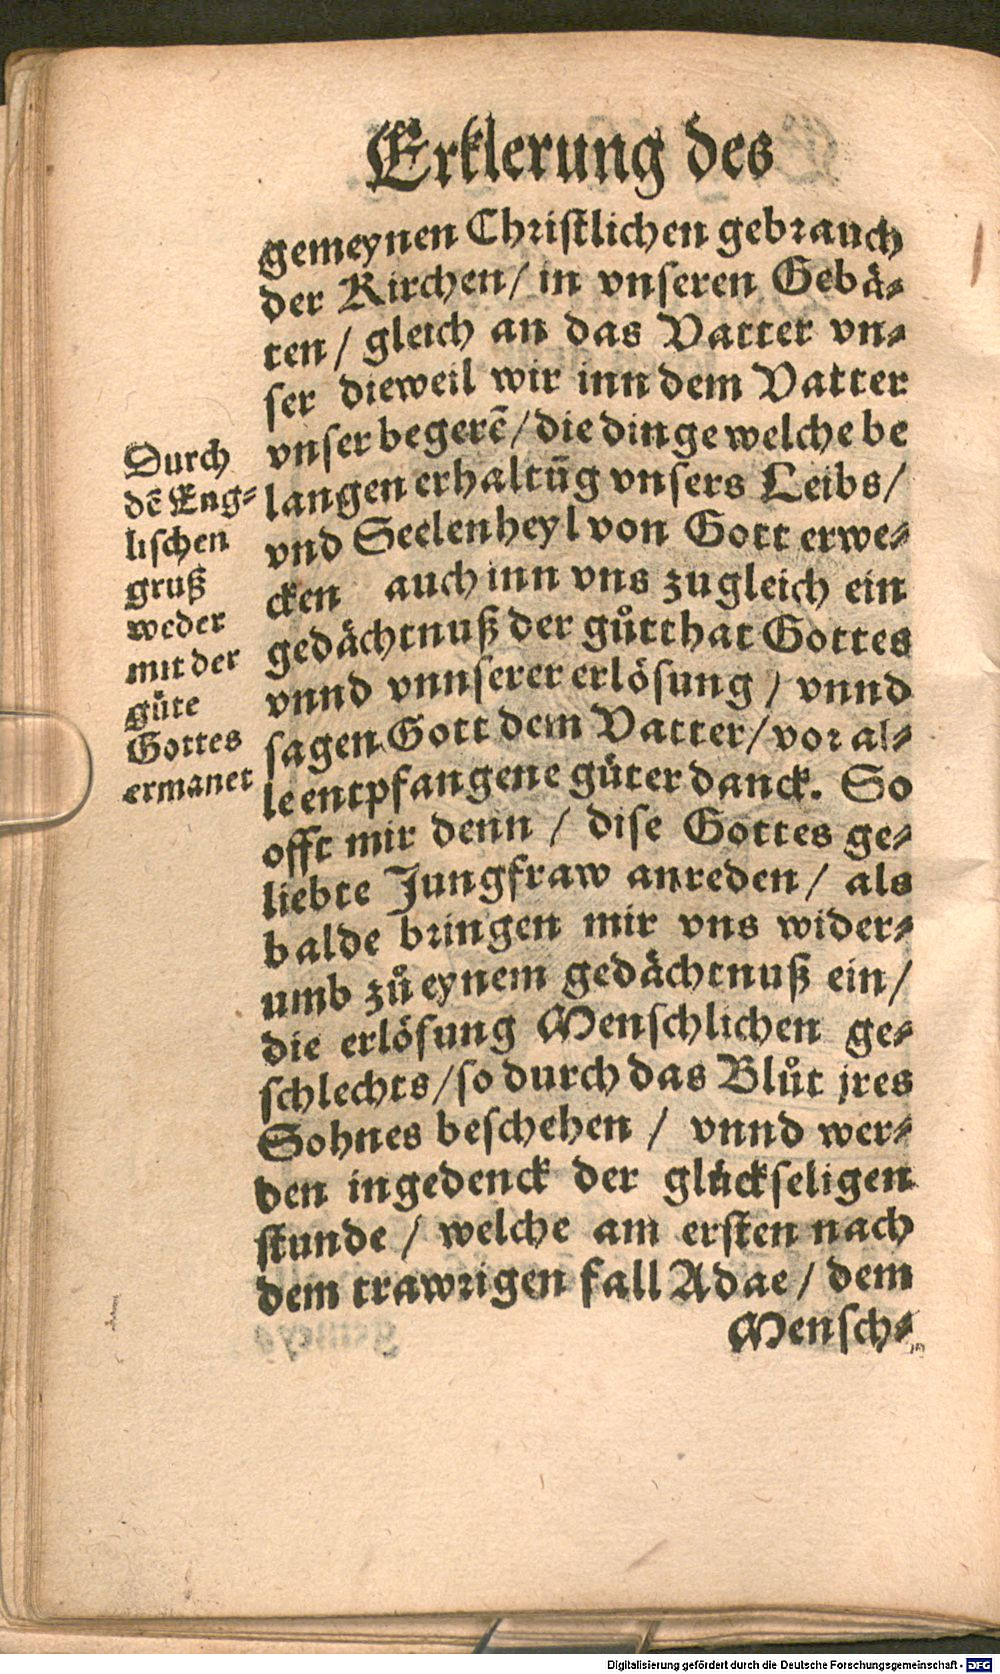 Erklerung des
gemeynen Christlichen gebrauch
der Kirchen/ in vnseren Gebä-
ten / gleich an das Vatter vn-
ser dieweil wir inn dem Vatter
vnser begerē/ die dinge welche be
langen erhaltūg vnsers Leibs/
vnd Seelenheyl von Gott erwe-
cken auch inn vns zugleich ein
gedächtnuß der gůtthat Gottes
vnnd vnnserer erlösung / vnnd
sagen Gott dem Vatter/ vor al-
le entpfangene güter danck. So
offt mir denn / dise Gottes ge-
liebte Jungfraw anreden/ als
balde bringen mir vns wider-
umb zů eynem gedächtnuß ein/
die erlösung Menschlichen ge-
schlechts/ so durch das Blůt jres
Sohnes beschehen / vnnd wer-
den ingedenck der glückseligen
stunde / welche am ersten nach
dem trawrigen fall Adae/ dem
Mensch-
Durch
dē Eng-
lischen
gruß
weder
mit der
güte
Gottes
ermanet
Digitalisierung gefördert durch die Deutsche Forschungsgemeinschaft - DFG